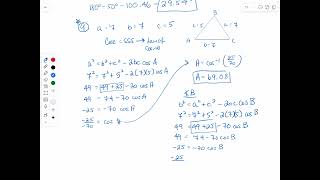 180°-50°-100.46 = 29.54°
9) a=7 b=7 c=5
Case = SSS → Law of
Cosines
B
c=5
A
b=7
C
a²=b²+c²-2bc cosA
7²=7²+5²-2(7)(5) cosA
49=49+25-70cosA
49=74-70cosA
-25=-70cosA
-25/-70 = cosA
A=cos⁻¹(25/70)
A=69.08
∡B
b²=a²+c²-2ac cosB
7²=7²+5²-2(7)(5) cosB
49=49+25-70cosB
49=74-70cosB
-25=-70cosB
-25